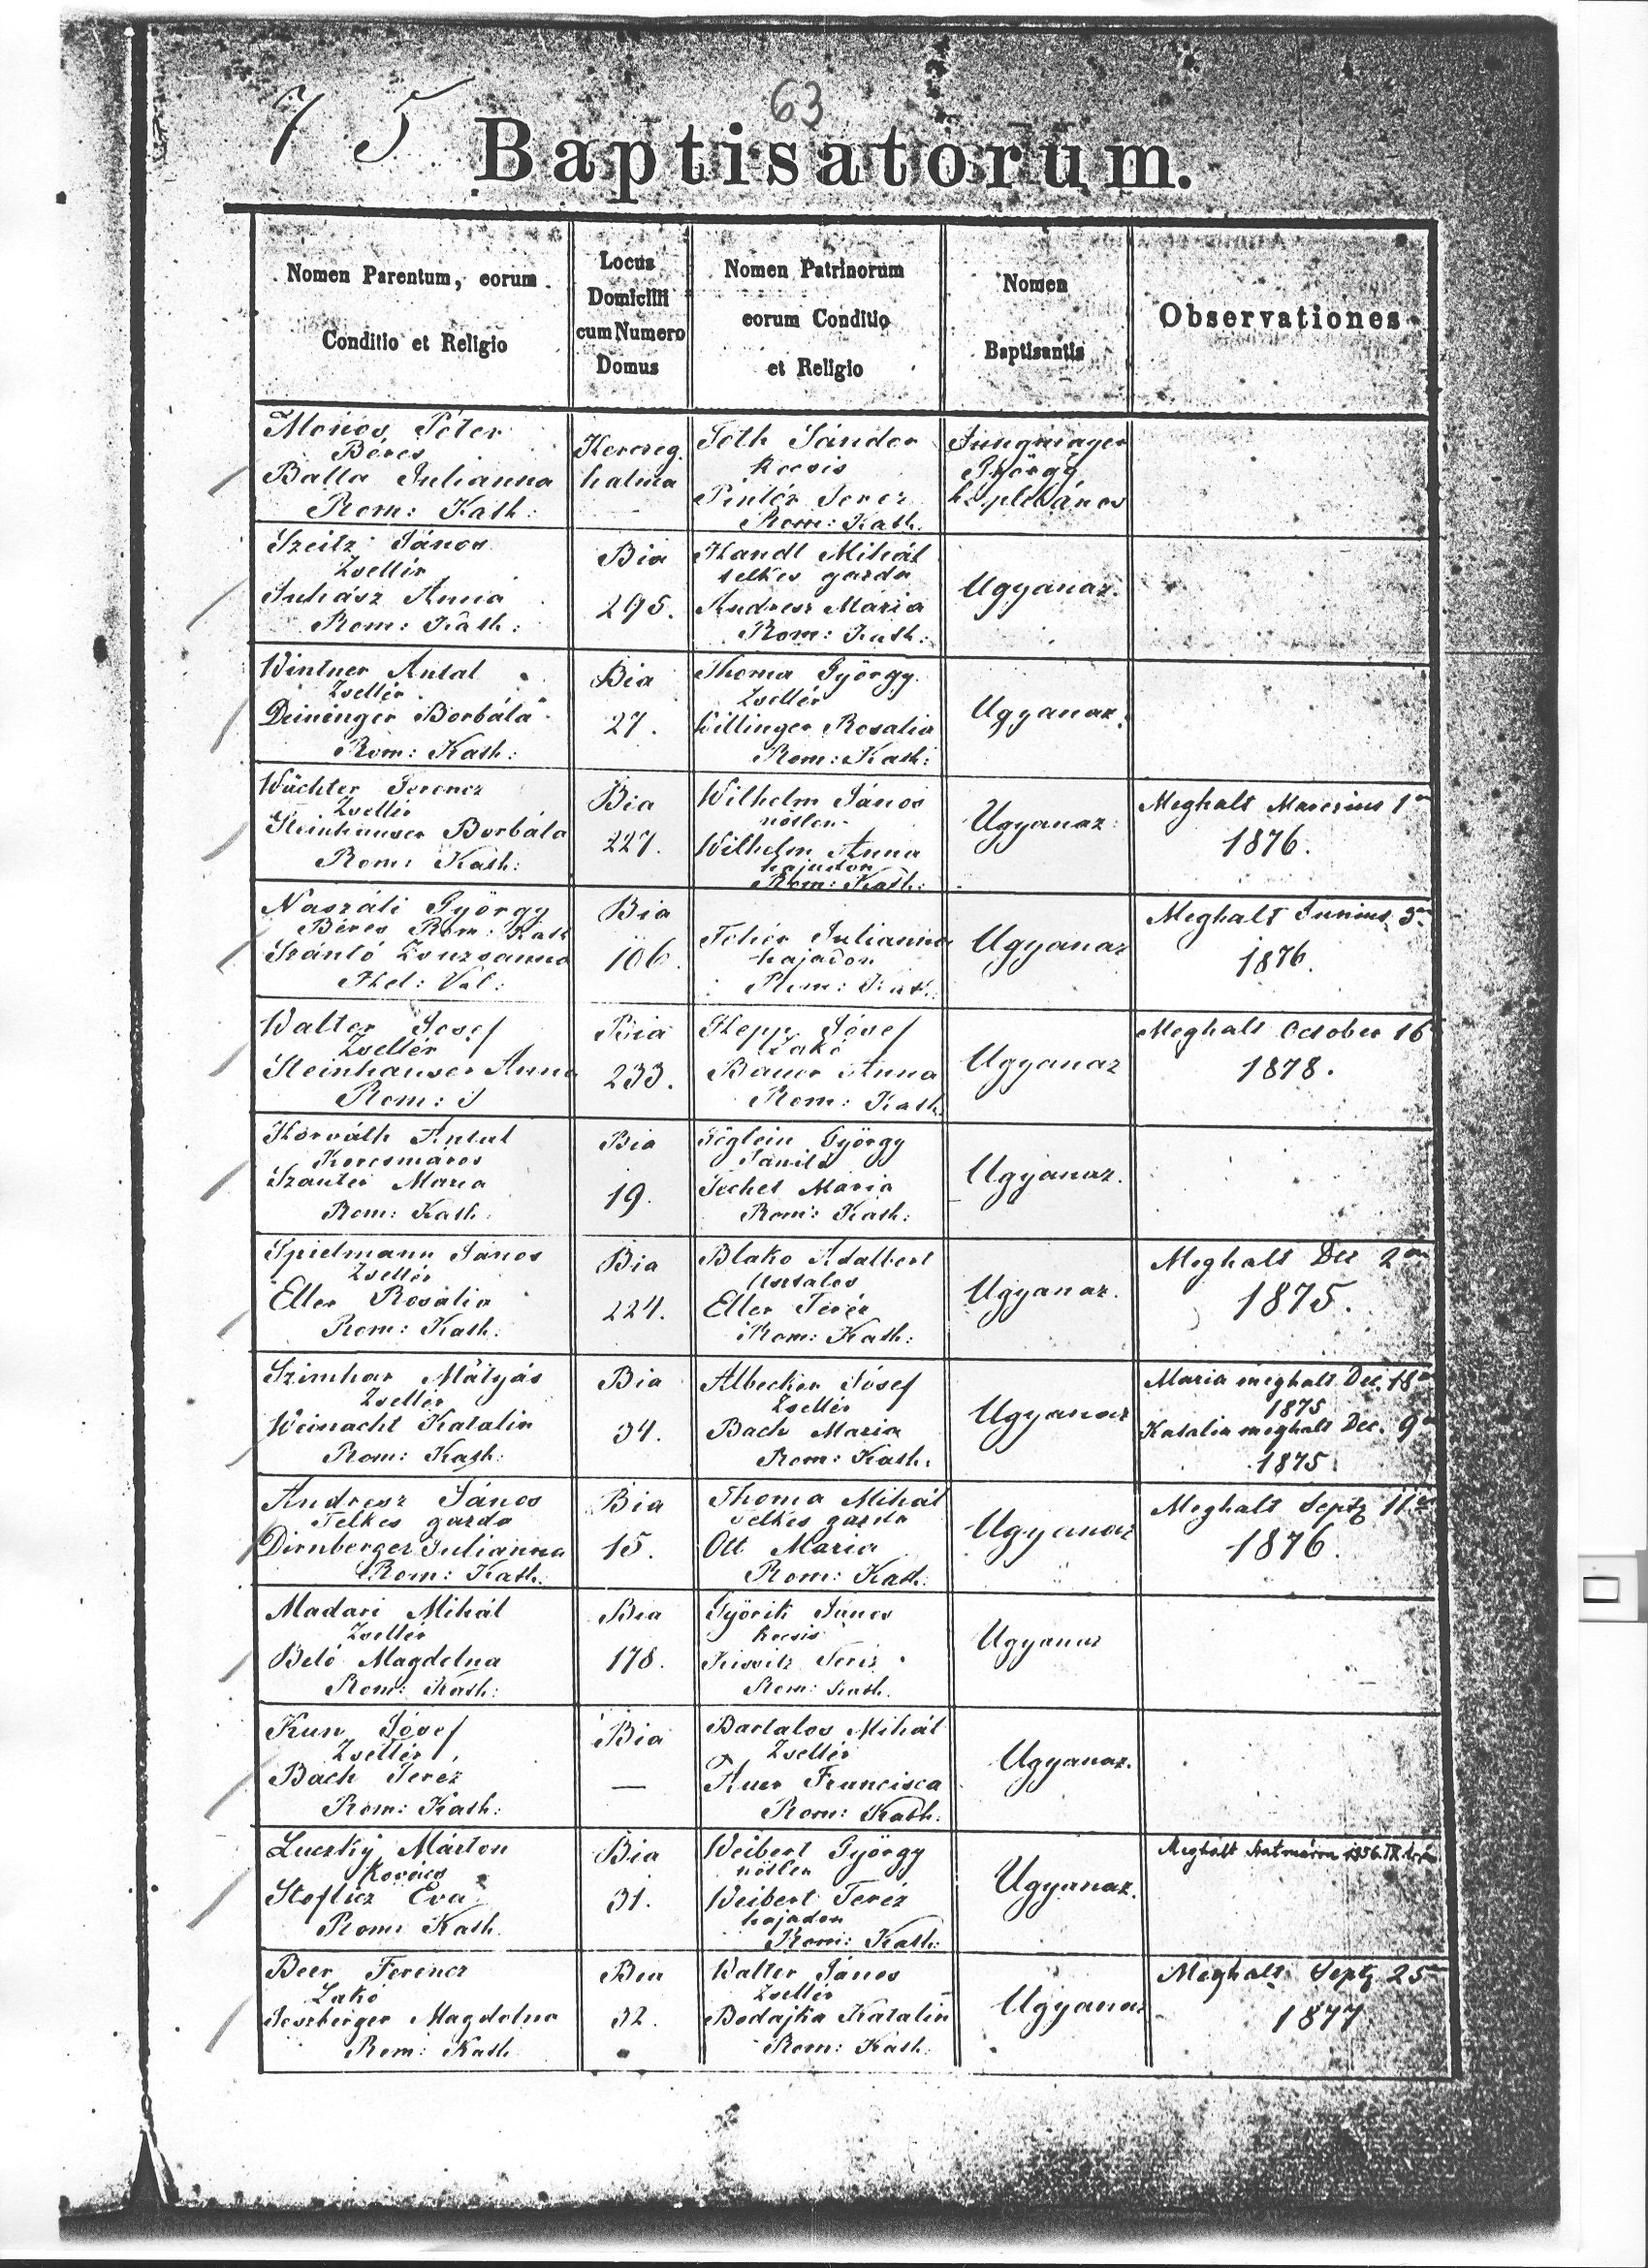 75
63
Baptisatorum.
Nomen Parentum, eorum
Conditio et Religio
Locus
Domicilii
cum Numero
Domus
Nomen Patrinorum
eorum Conditio
et Religio
Nomen
Baptisantis
Observationes
Péter
Béres
Balla Julianna
Rom: Kath:
Herczeg
halma
Toth Sándor
kocsis
Pintér Terez
Rom: Kath.
Jungmayer
György
Szeitz János
Zsellér
Juhász Anna
Rom: Kath:
Bia
295.
Handl Mihál
telkes gazda
Andresz Mária
Rom: Kath:
Ugyanaz.
Wintner Antal
Zsellér
Deininger Borbála
Rom: Kath:
Bia
27.
Thoma György
Zsellér
Willinger Rosalia
Rom: Kath:
Ugyanaz.
Wächter Ferencz
Zsellér
Steinhauser Borbála
Rom: Kath:
Bia
227.
Wilhelm János
nőtlen
Wilhelm Anna
hajadon
Rom: Kath:
Ugyanaz.
Meghalt Marczius 1én
1876.
Naszáli György
Béres Rom: Kath
Szántó Zsuzsanna
Hel: Val:
Bia
106.
Fehér Julianna
hajadon
Rom: Kath.
Ugyanaz
Meghalt Junius 3án
1876.
Walter Josef
Zsellér
Steinhauser Anna
Rom:
Bia
233.
Hepp Jósef
Lakó
Bauer Anna
Rom: Kath
Ugyanaz
Meghalt October 16
1878.
Horváth Antal
Korcsmáros
Szauter Maria
Rom: Kath:
Bia
19.
György
Tanitó
Maria
Rom: Kath:
Ugyanaz.
Spielmann János
Zsellér
Eller Rosália
Rom: Kath:
Bia
224.
Blako Adalbert
Asztalos
Eller Teréz
Rom: Kath:
Ugyanaz.
Meghalt Dec 2án
1875.
Szimhar Mátyás
Zsellér
Weinacht Katalin
Rom: Kath:
Bia
34.
Albecker Jósef
Zsellér
Bach Maria
Rom: Kath:
Ugyanaz
Maria meghalt Dec. 18án
1875
Katalin meghalt Dec. 9én
1875.
Andresz János
Telkes gazda
Dirnberger Julianna
Rom: Kath:
Bia
15.
Thoma Mihál
telkes gazda
Ott Maria
Rom: Kath:
Ugyanaz
Meghalt Septz 11én
1876.
Madari Mihál
Zsellér
Beló Magdolna
Rom: Kath:
Bia
178.
Györik János
kocsis
Teréz
Rom: Kath.
Ugyanaz
Kun Jósef
Zsellér
Bach Terez
Rom: Kath:
Bia
—
Bartalos Mihál
Zsellér
Auer Francisca
Rom: Kath:
Ugyanaz.
Luczky Márton
Kovács
Steflicz Eva
Rom: Kath.
Bia
31.
Weibert György
nőtlen
Weibert Teréz
hajadon
Rom: Kath:
Ugyanaz.
Meghalt 1956. IX.
Beer Ferencz
Lakó
Magdolna
Rom: Kath
Bia
32.
Walter János
Zsellér
Bodajka Katalin
Rom: Kath.
Ugyanaz
Meghalt Septz 25
1877